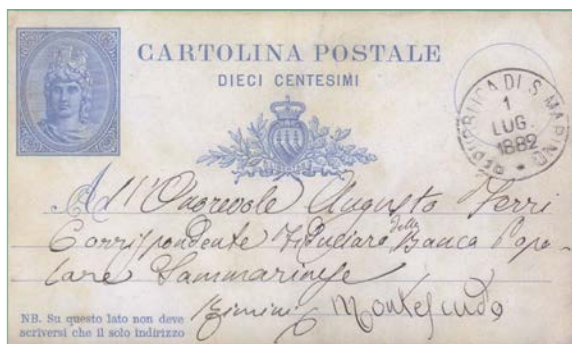 CARTOLINA POSTALE
DIECI CENTESIMI
REPUBBLICA DI S. MARINO
1
LUG.
1882
All'Onorevole Augusto Ferri
Corrispondente Fiduciaro della Banca Popo-
lare Sammarinese
Rimini Montescudo
NB. Su questo lato non deve
scriversi che il solo indirizzo